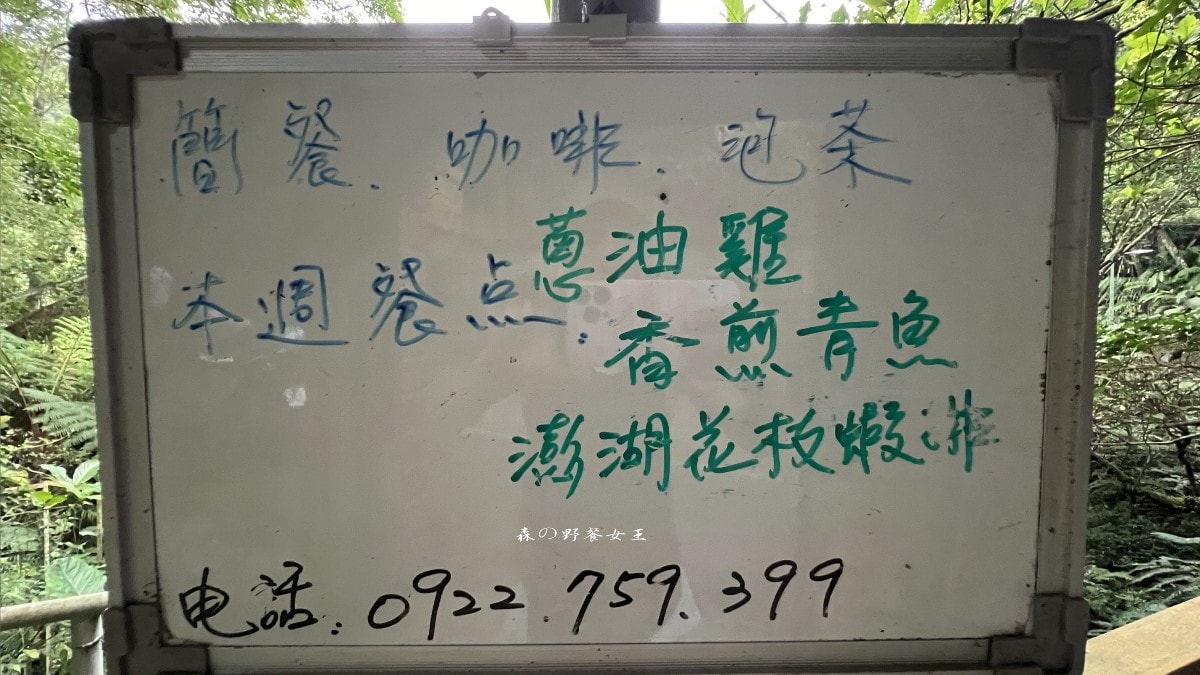 簡餐. 咖啡. 泡茶
本週餐点:
蔥油雞
香煎青魚
澎湖花枝蝦
森の野餐女王
电話: 0922 759.399